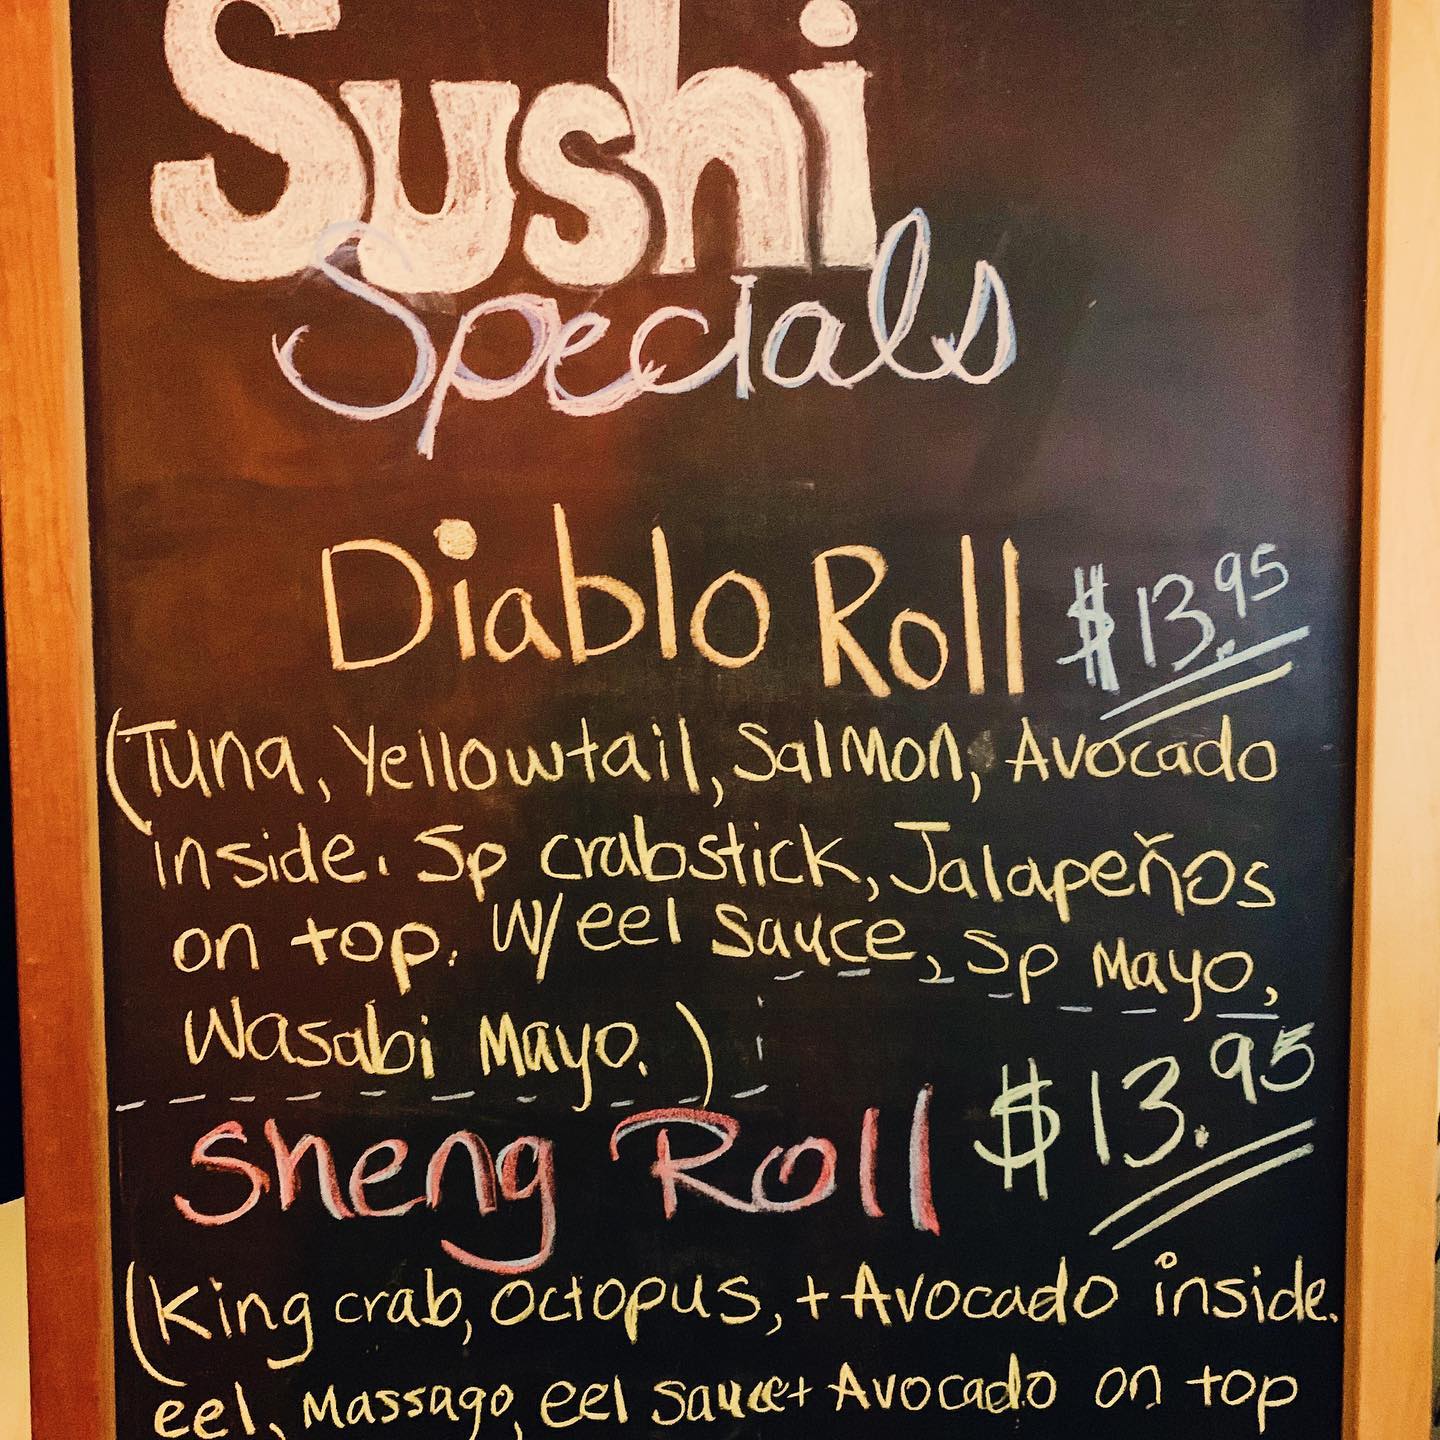 Sushi
Specials
Diablo Roll $13.95
(Tuna, Yellowtail, Salmon, Avocado
inside. Sp crabstick, Jalapeños
on top. W/ eel sauce, Sp Mayo,
Wasabi Mayo.)
Sheng Roll $13.95
(King crab, octopus, + Avocado inside.
eel, Massago, eel sauce + Avocado on top